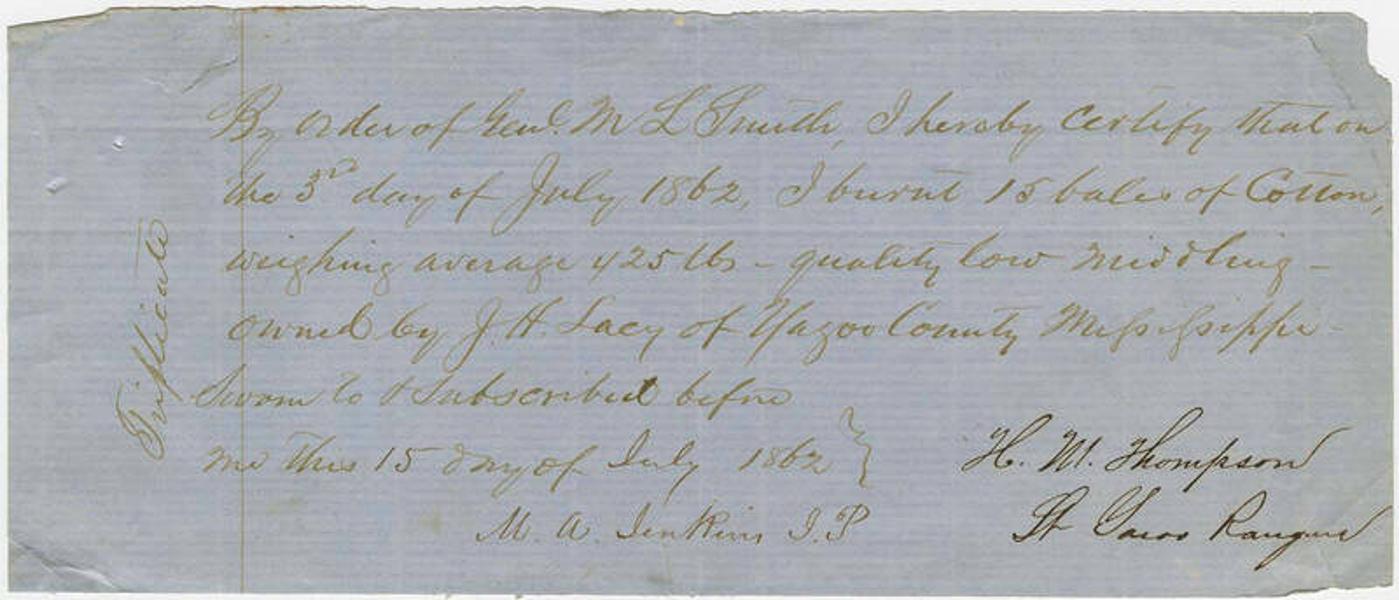 By order of Genl. M L Smith, I hereby certify that on
the 3rd day of July 1862, I burnt 15 bales of Cotton,
weighing average 425 lbs - quality low middling -
owned by J. H. Lacy of Yazoo County Mississippi -
Sworn to & Subscribed before
me this 15 day of July 1862
M. A. Jenkins J. P
H. M. Thompson
Lt Yazoo Rangers
Triplicate